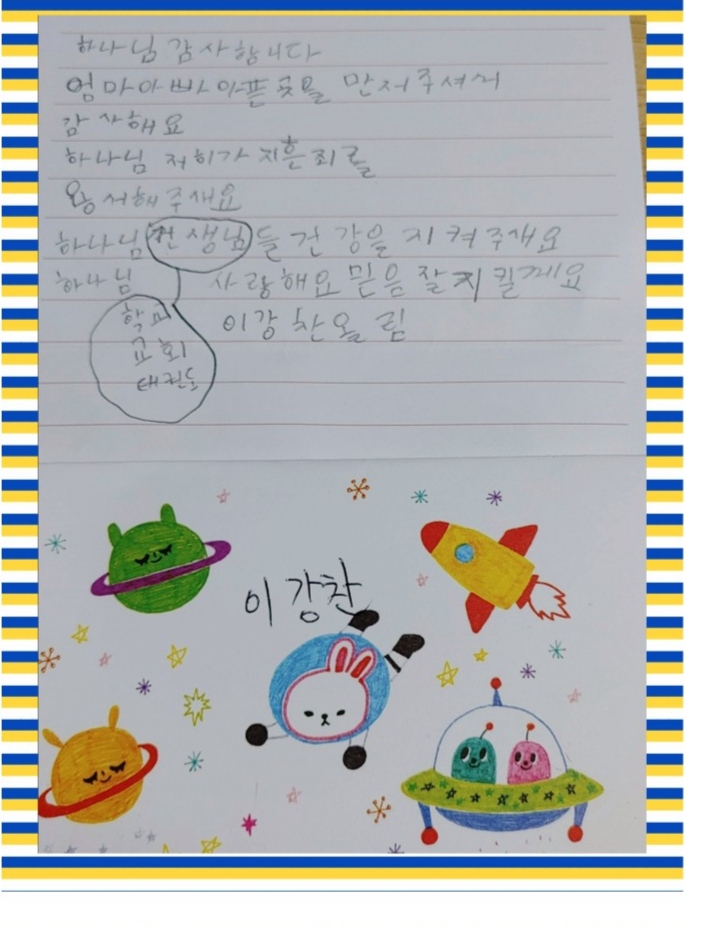 하나님 감사합니다
엄마아빠아픈곳을 만저주셔서
감사해요
하나님 저희가 지흔죄를
용서해주새요
하나님 선생님들 건강을 지켜주새요
하나님 사랑해요 믿음 잘지킬께요
학교
교회
태권도
이강찬올림
이강찬